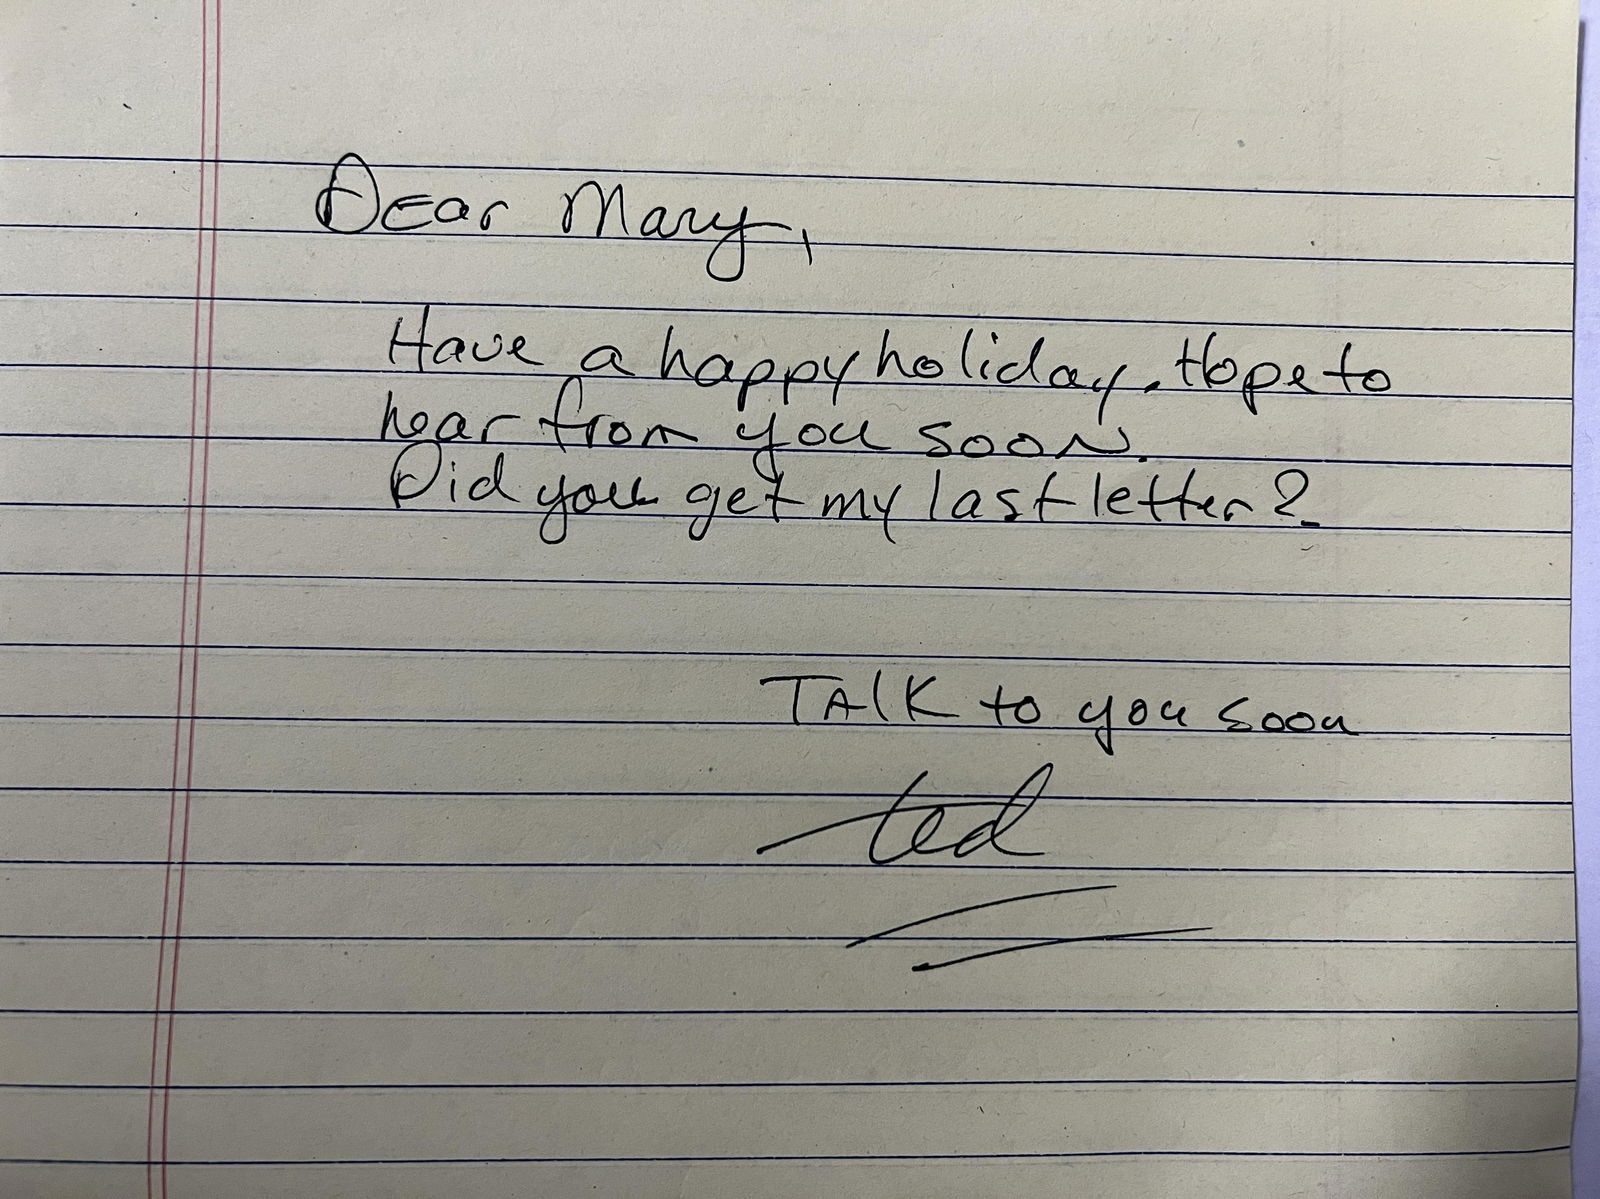 Dear Mary,
Have a happy holiday. Hope to
hear from you soon.
Did you get my last letter?
TAlK to you soon
ted